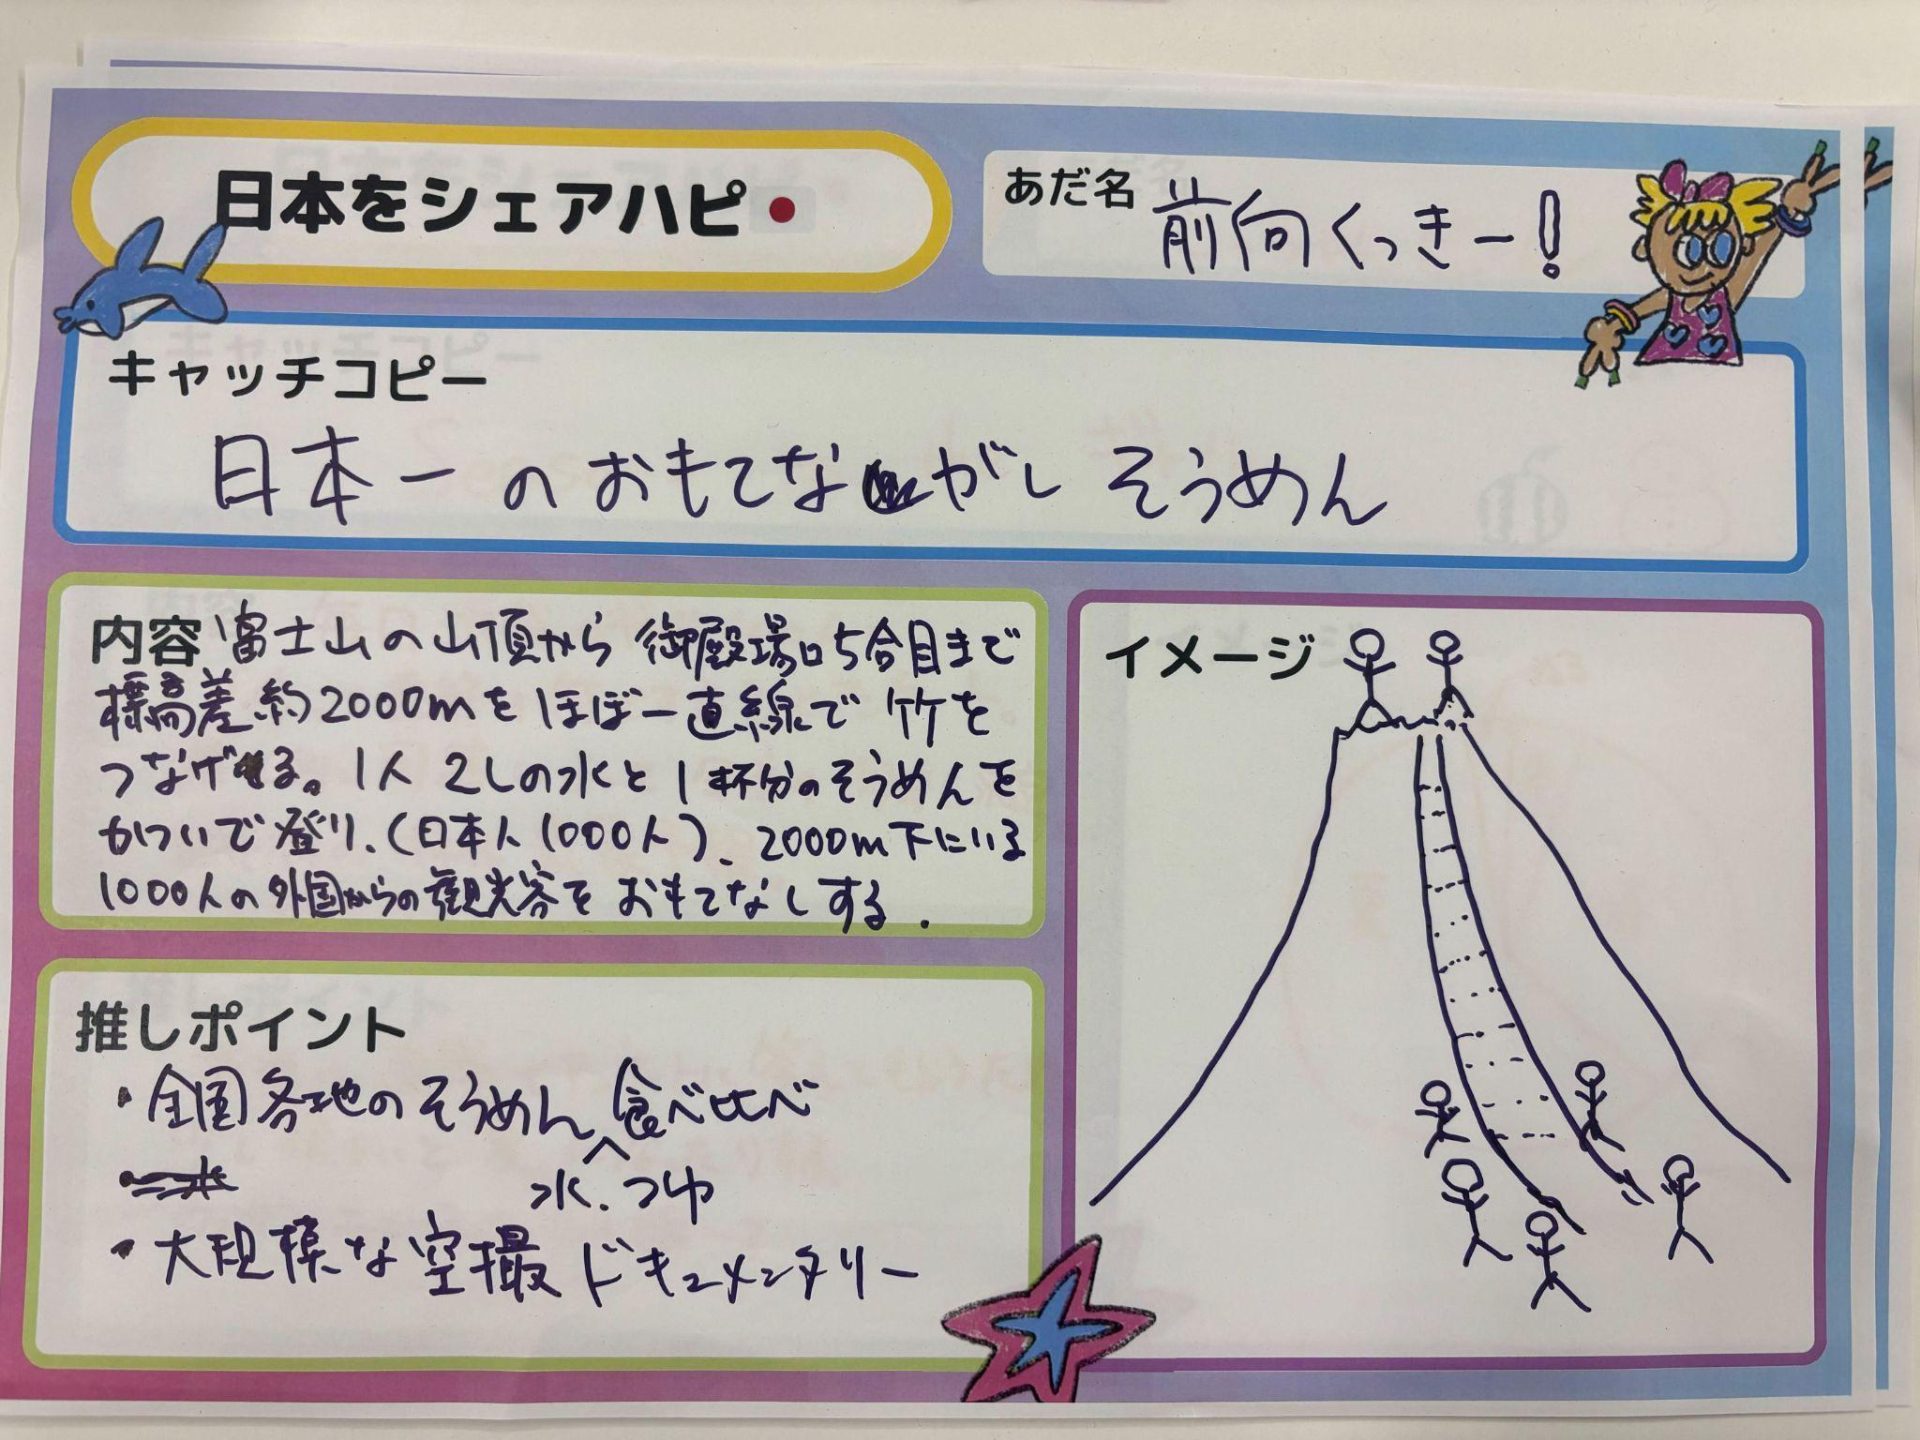 日本をシェアハピ
あだ名 前向くっきー!
キャッチコピー
日本一のおもてながしそうめん
内容 富士山の山頂から御殿場口5合目まで
標高差約2000mをほぼ一直線で竹を
つなげる。1人2Lの水と1杯分のそうめんを
かついで登り、(日本人1000人)、2000m下にいる
1000人の外国からの観光客をおもてなしする.
推しポイント
・全国各地のそうめん食べ比べ
水.つゆ
・大規模な空撮ドキュメンタリー
イメージ